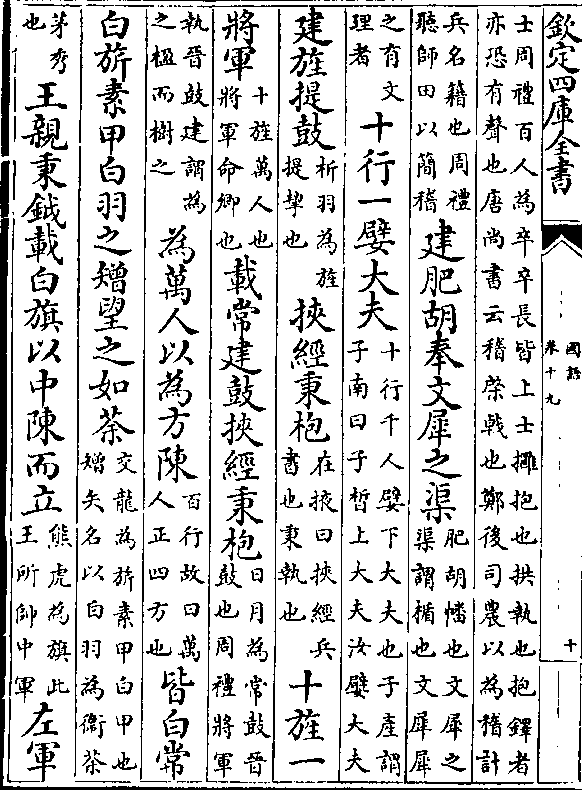 欽定四庫全書
國語
卷十九
十
士周禮百人為卒卒長皆上士擁抱也拱執也抱鐸者
亦恐有聲也唐尚書云稽棨戟也鄭後司農以為稽計
兵名籍也周禮
聽師田以簡稽
建肥胡奉文犀之渠
肥胡幡也文犀之
渠謂楯也文犀犀
之有文
理者
十行一嬖大夫
十行千人嬖下大夫也子產謂
子南曰子晳上大夫汝嬖大夫
建旌提鼓
析羽為旌
提挈也
挾經秉枹
在掖曰挾經兵
書也秉執也
十旌一
將軍
十旌萬人也
將軍命卿也
載常建鼓挾經秉枹
日月為常鼓晉
鼓也周禮將軍
執晉鼓建謂為
之楹而樹之
為萬人以為方陳
百行故曰萬
人正四方也
皆白常
白旂素甲白羽之矰望之如荼
交龍為旂素甲白甲也
矰矢名以白羽為衞荼
茅秀
也
王親秉鉞載白旗以中陳而立
熊虎為旗此
王所帥中軍
左軍